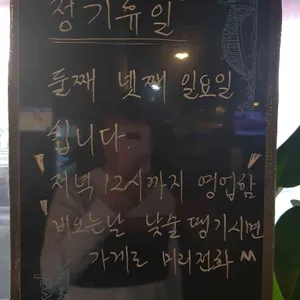 정기휴일
둘째 넷째 일요일
쉽니다.
저녁 12시까지 영업함
비오는날 낮술 땡기시면
가게로 미리전화